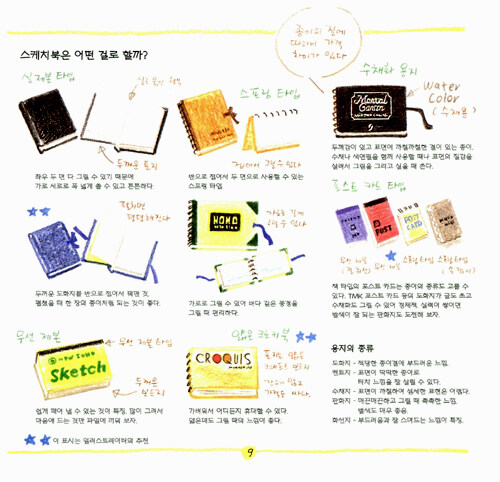 스케치북은 어떤 걸로 할까?
종이의 질에
따라서 가격
차이가 있다
실제본 타입
스프링 타입
수채화 용지
Water
Color
(수채용)
두꺼운 표지
접어서 쓸 수 있다
좌우 두 면 다 그릴 수 있기 때문에
가로 세로로 폭 넓게 쓸 수 있고 튼튼하다.
반으로 접어서 두 면으로 사용할 수 있는
스프링 타입.
두께감이 있고 표면이 까칠까칠한 결이 있는 종이.
수채나 색연필을 함께 사용할 때나 표면의 질감을
살려서 그림을 그리고 싶을 때 쓴다.
포스트 카드 타입
펼치면
평평해진다
가로로 길게
POST
POST
CARD
두꺼운 도화지를 반으로 접어서 묶은 것.
펼쳤을 때 한 장의 종이처럼 되는 것이 좋다.
가로로 그릴 수 있어 바다 같은 풍경을
그릴 때 편리하다.
책 타입의 포스트 카드는 종이의 종류도 고를 수
있다. TMK 포스트 카드 등의 도화지가 글도 쓰고
수채화도 그릴 수 있어 경제적. 실력이 쌓이면
발색이 잘 되는 판화지도 도전해 보자.
무선 제본
무선 제본 타입
Sketch
두꺼운
보드지
얇은 크로키북
CROQUIS
쉽게 떼어 낼 수 있는 것이 특징. 많이 그려서
마음에 드는 것만 파일에 끼워 보자.
가벼워서 어디든지 휴대할 수 있다.
얇은데도 그릴 때의 느낌이 좋다.
용지의 종류
도화지 - 적당한 종이결에 부드러운 느낌.
켄트지 - 표면이 딱딱한 종이로
터치 느낌을 잘 살릴 수 있다.
수채지 - 표면이 까칠하여 섬세한 표현은 어렵다.
판화지 - 매끈매끈하고 그릴 때 촉촉한 느낌.
발색도 매우 좋음.
화선지 - 부드러움과 잘 스며드는 느낌이 특징.
이 표시는 일러스트레이터의 추천
9